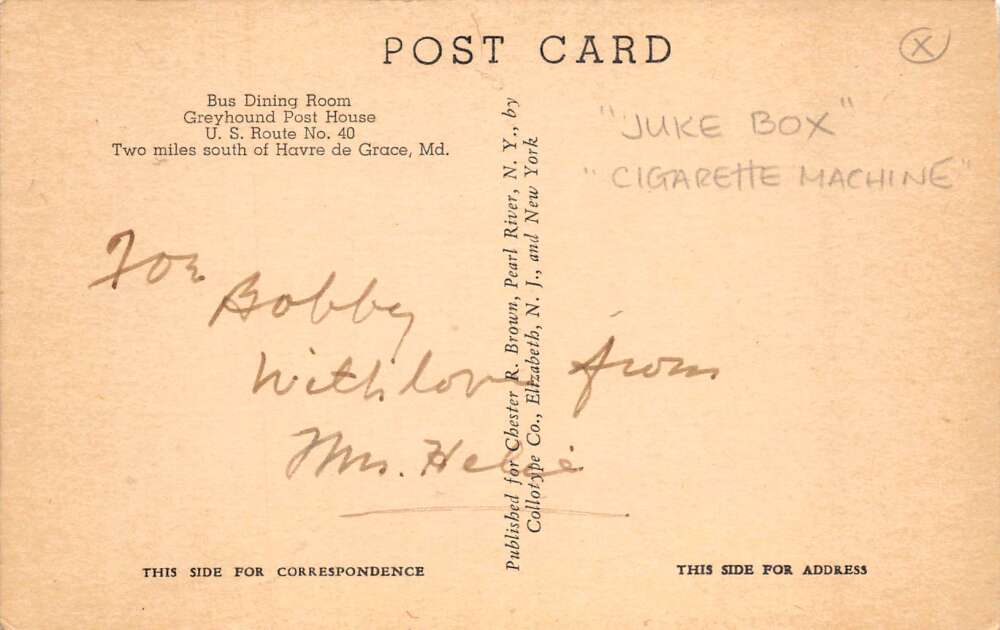 POST CARD
X
Bus Dining Room
Greyhound Post House
U. S. Route No. 40
Two miles south of Havre de Grace, Md.
"JUKE BOX"
"CIGARETTE MACHINE"
For
Bobby
With love from
Mrs.
Published for Chester R. Brown, Pearl River, N. Y., by
Collotype Co., Elizabeth, N. J., and New York
THIS SIDE FOR CORRESPONDENCE
THIS SIDE FOR ADDRESS